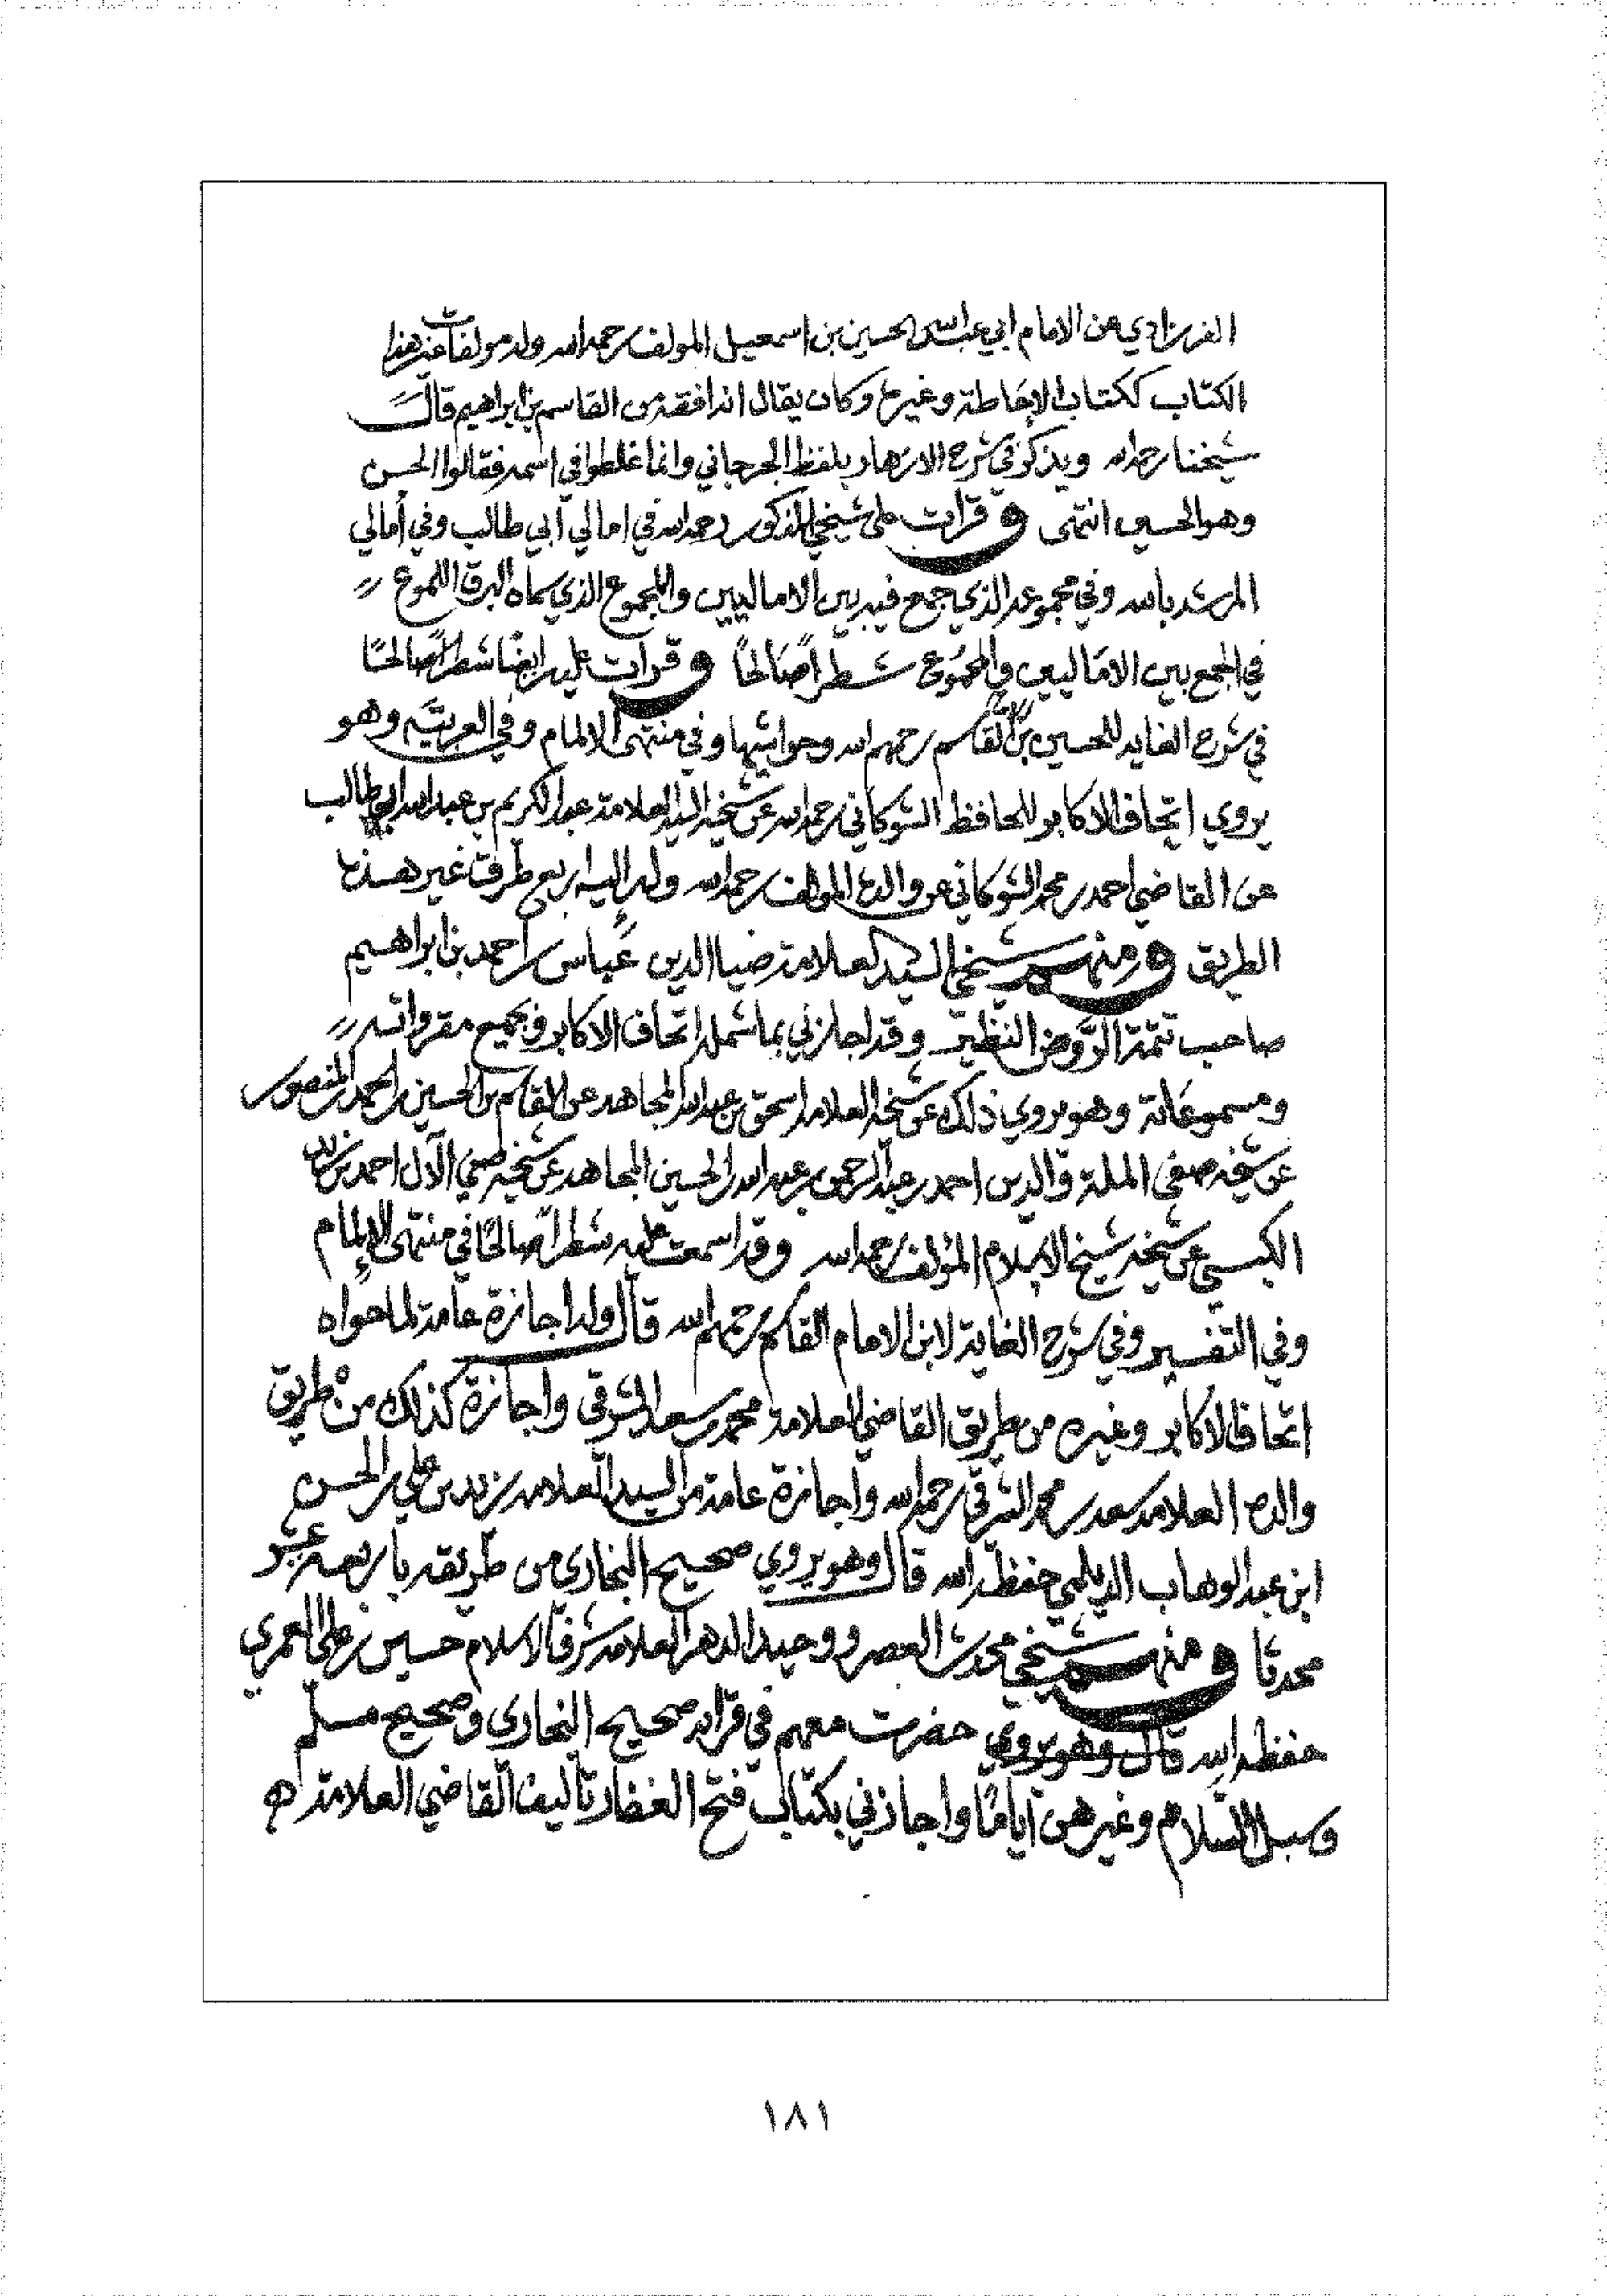 الفرزادي عن الامام ابي عبدالله الحسين بن اسمعيل المولف رحمه الله وله مولفات غير هذا
الكتاب ككتاب الاحاطة وغيرها وكان يقال انه افقه من القاسم بن ابراهيم قال
شيخنا رحمه الله ويذكر في شرح الازهار بلفظ الجرجاني وانما غلطوا في اسمه فقالوا الحسن
وهو الحسين انتهى وقرات على شيخي المذكور رحمه الله في امالي أبي طالب وفي أمالي
المرشد بالله وفي مجموعه الذي جمع فيه بين الاماليين والمجموع الذي سماه البرق اللموع
في الجمع بين الاماليين والمجموع شطرًا صالحًا وقرات عليه ايضًا شطرًا صالحًا
في شرح الغايه للحسين بن القاسم رحمهم الله وحواشيها وفي منتهى الالمام وفي العربيّه وهو
يروي اتحاف الاكابر للحافظ الشوكاني رحمه الله عن شيخه السيد العلامة عبد الكريم بن عبدالله ابي طالب
عن القاضي احمد بن محمد الشوكاني عن والده المولف رحمه الله وله اليه اربع طرق غير هذه
الطريق ومنهم شيخي السيد العلامة ضيا الدين عباس بن احمد بن ابراهيم
صاحب تتمة الرّوض النظير وقد اجازني بما شمله اتحاف الاكابر وبجميع مقرواته
ومسموعاته وهو يروي ذلك عن شيخه العلامه اسحق بن عبدالله المجاهد عن القاسم بن الحسين بن احمد المنصور
عن شيخه صفي الملة والدين احمد بن عبد الرحمن بن عبدالله بن الحسين المجاهد عن شيخه صفي الآل احمد بن زيد
الكبسي عن شيخه شيخ الاسلام المؤلف رحمه الله وقد اسمعت عليه شطرًا صالحًا في منتهى الإلمام
وفي التفسير وفي شرح الغاية لابن الامام القاسم رحمهم الله قال وله اجازة عامة لما حواه
اتحاف الاكابر وغيره من طريق القاضي العلامة محمد بن سعد الشرقي واجازة كذلك من طريق
والده العلامه سعد بن محمد الشرقي رحمه الله واجازة عامة من السيد العلامه زيد بن علي بن الحسن
ابن عبد الوهاب الديلمي حفظه الله قال وهو يروي صحيح البخاري من طريقه باربعه عشر
محدثا ومنهم شيخي محدث العصر ووحيد الدهر العلامه شرف الاسلام حسين بن علي العمري
حفظه الله قال وهو يروي حضرت معهم في قراية صحيح البخاري وصحيح مسلم
وسبل السّلام وغيرهن أيامًا واجازني بكتاب فتح الغفار تاليف القاضي العلامة
١٨١